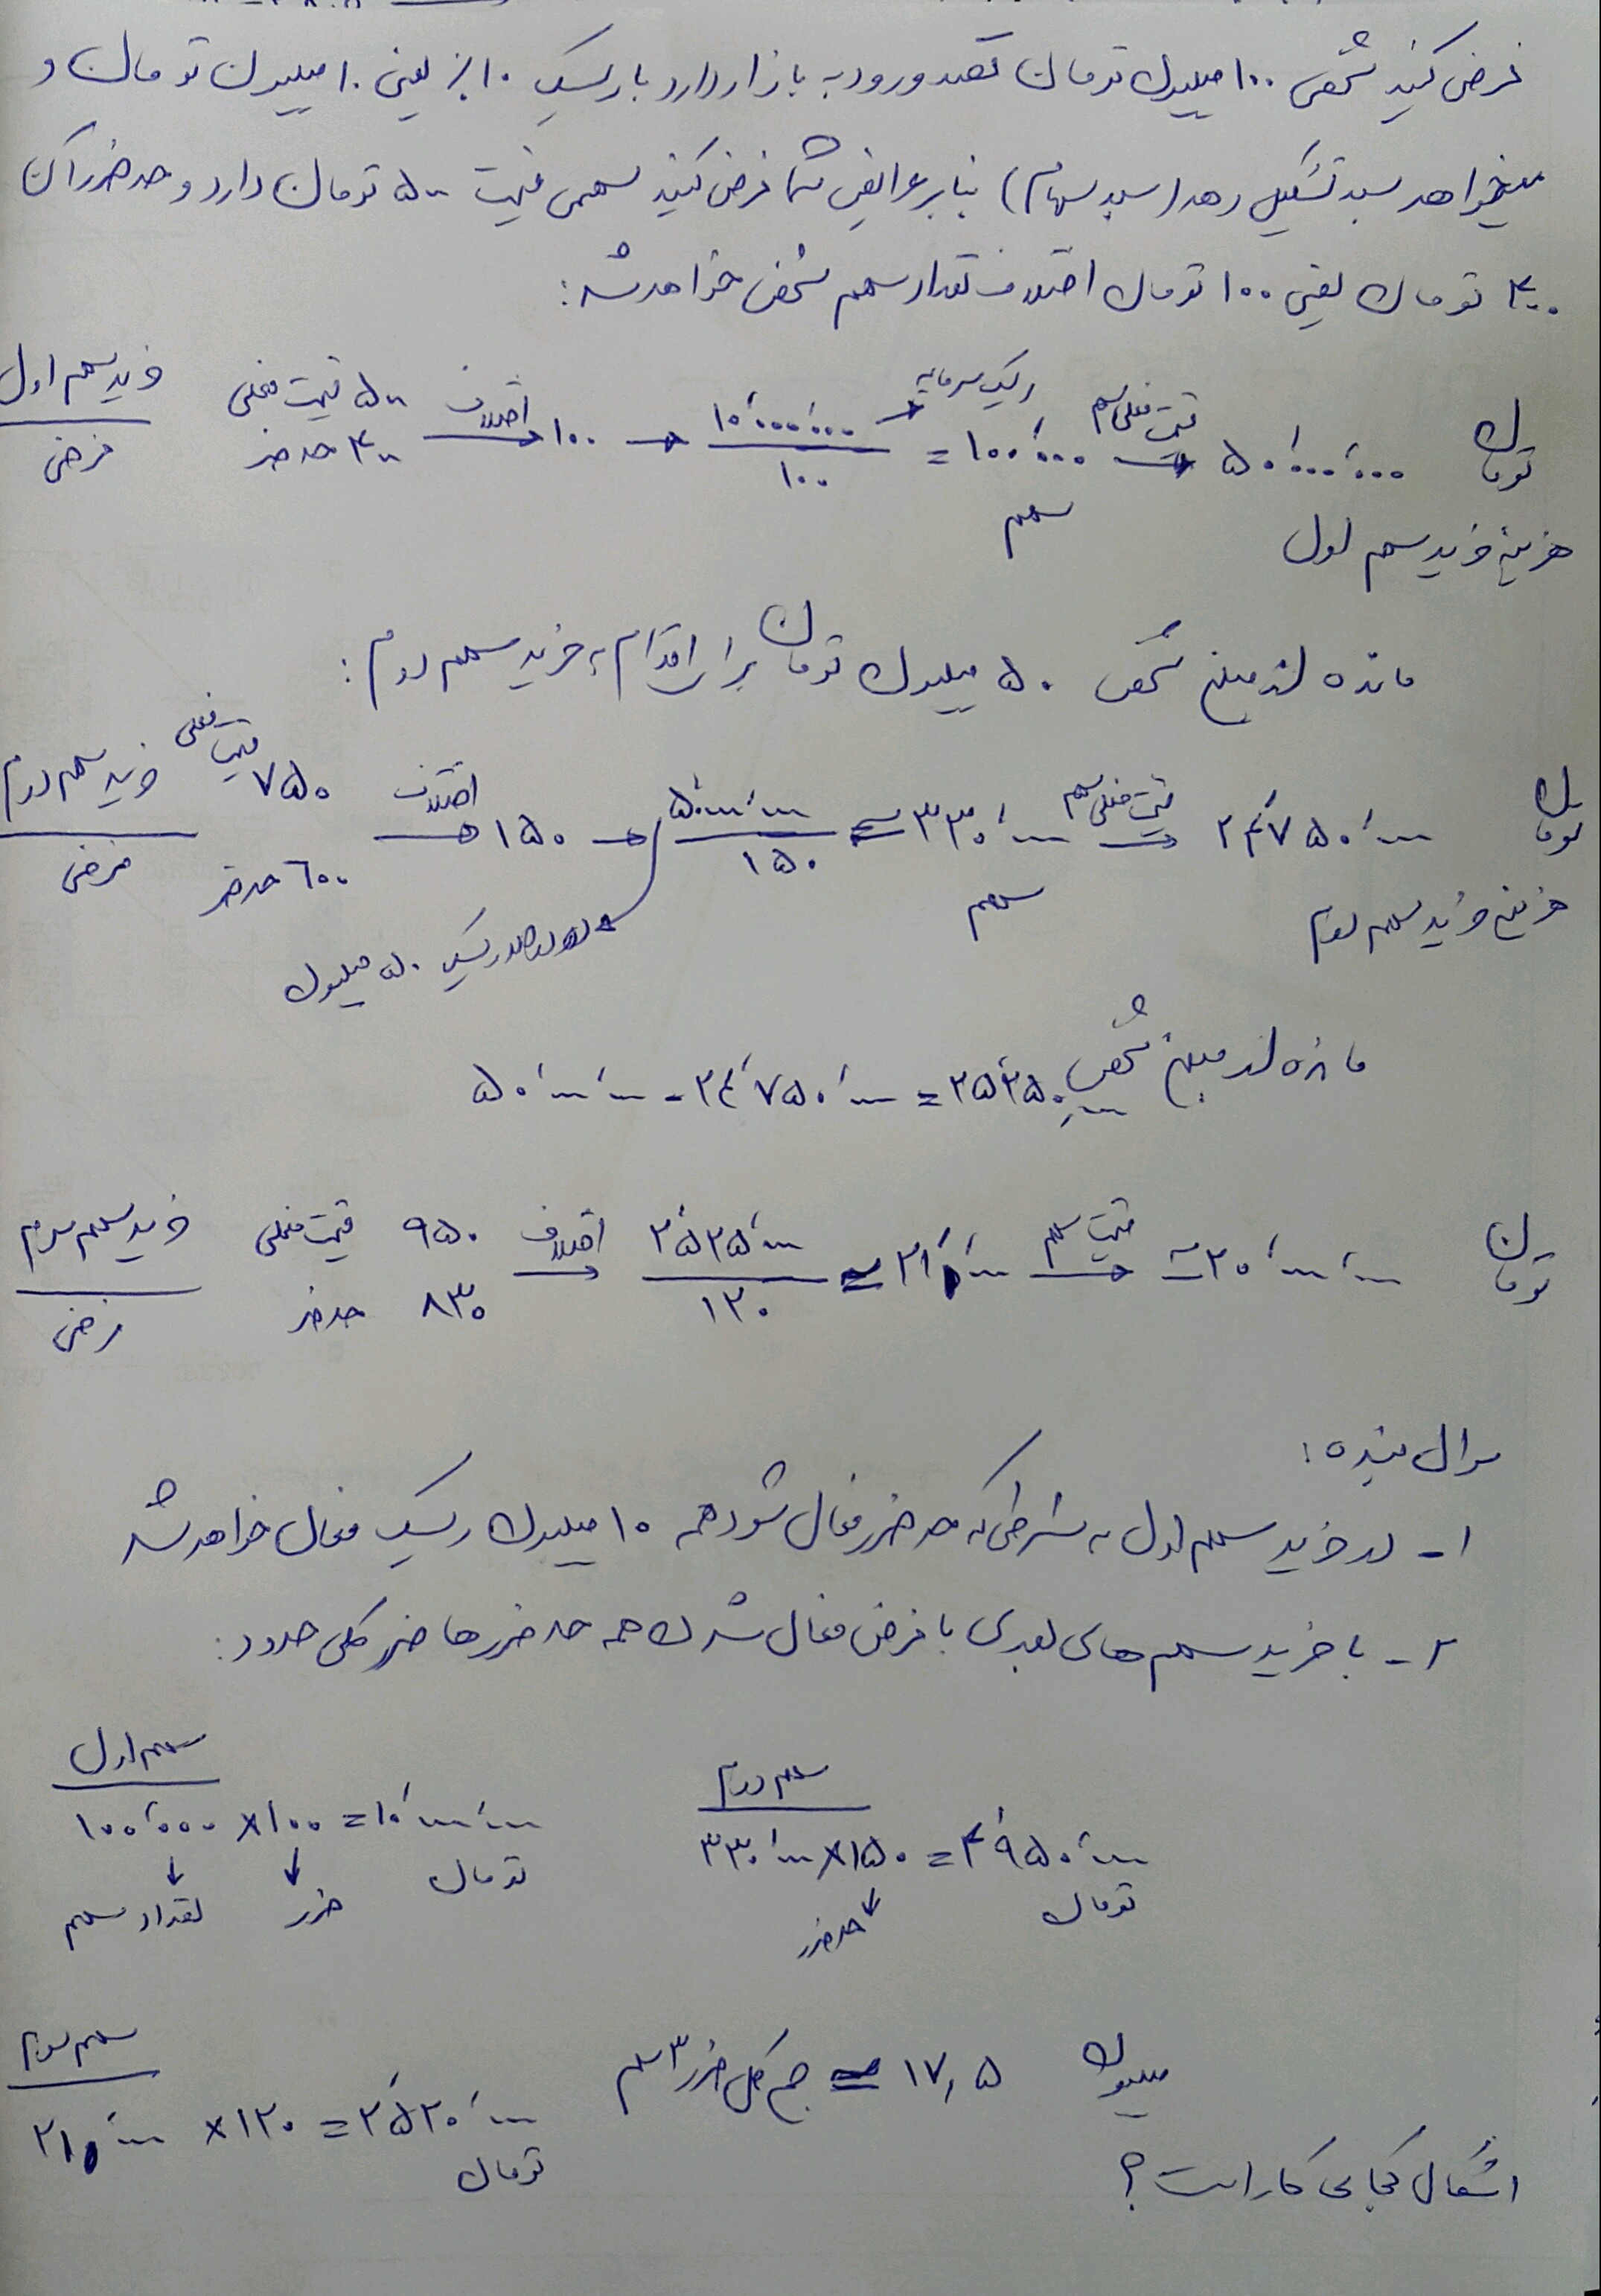 فرض کنید شخصی ۱۰۰ میلیون تومان قصد ورود به بازار دارد با ریسک ۱۰٪ یعنی ۱۰ میلیون تومان و
میخواهد سبد تشکیل دهد (سبد سهام) بنابر عرایض شما فرض کنید سهمی قیمت ۵۰۰ تومان دارد و حد ضرر آن
۴۰۰ تومان یعنی ۱۰۰ تومان اختلاف تعداد سهم شخص خواهد شد:
خرید سهم اول فرضی
۵۰۰ قیمت فعلی ۴۰۰ حد ضرر اختلاف → ۱۰۰ → ۱۰٬۰۰۰٬۰۰۰ / ۱۰۰ → ریسک سرمایه = ۱۰۰٬۰۰۰ سهم قیمت فعلی سهم → ۵۰٬۰۰۰٬۰۰۰ تومان
هزینه خرید سهم اول
مانده از مبلغ شخص ۵۰ میلیون تومان برای اقدام به خرید سهم دوم:
خرید سهم دوم فرضی
۷۵۰ قیمت فعلی ۶۰۰ حد ضرر اختلاف → ۱۵۰ → ۵٬۰۰۰٬۰۰۰ / ۱۵۰ = ۳۳٬۰۰۰ سهم قیمت فعلی سهم → ۲۴٬۷۵۰٬۰۰۰ تومان
هزینه خرید سهم دوم
درصد ریسک ۵۰ میلیون
مانده از مبلغ شخص
۵۰٬۰۰۰٬۰۰۰ - ۲۴٬۷۵۰٬۰۰۰ = ۲۵٬۲۵۰٬۰۰۰
خرید سهم سوم فرضی
۹۵۰ قیمت فعلی ۸۳۰ حد ضرر اختلاف → ۲٬۵۲۵٬۰۰۰ / ۱۲۰ = ۲۱٬۰۰۰ قیمت سهم → = ۲۰٬۰۰۰٬۰۰۰ تومان
سوال بنده:
۱- در خرید سهم اول به شرطی که حد ضرر فعال شود همه ۱۰ میلیون ریسک فعال خواهد شد
۲- با خرید سهم های بعدی با فرض فعال شدن همه حد ضررها ضرر کلی حدود:
سهم اول
۱۰۰٬۰۰۰ × ۱۰۰ = ۱۰٬۰۰۰٬۰۰۰ تومان
↓ تعداد سهم ↓ ضرر
سهم دوم
۳۳٬۰۰۰ × ۱۵۰ = ۴٬۹۵۰٬۰۰۰ تومان
↓ حد ضرر
سهم سوم
۲۱٬۰۰۰ × ۱۲۰ = ۲٬۵۲۰٬۰۰۰ تومان
جمع کل ضرر ۳ سهم = ۱۷٫۵ میلیون
اشکال کجای کار است؟